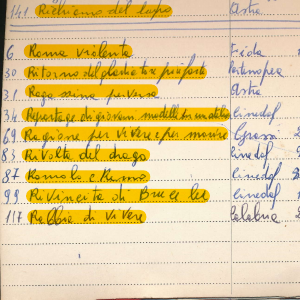 141 Richiamo del lupo Astra
6 Roma violenta Fida
30 Ritorno del gladiatore più forte Partenopea
31 Ragazzina perversa Astra
34 Reportage di giovani modelle Cinedaf
69 Ragione per vivere e per morire Grassi
83 Rivolta del drago Cinedaf 9
87 Romolo e Remo Cinedaf 2
99 Rivincita di Bruce Lee Cinedaf
117 Rabbia di Vivere Calabria 2